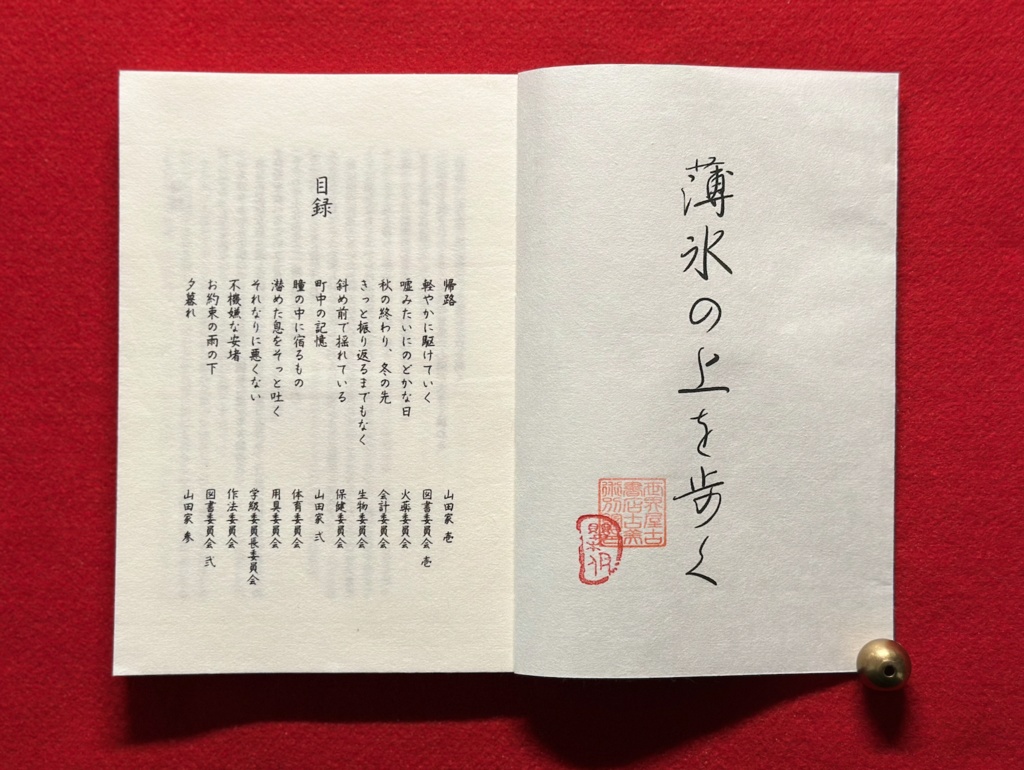 薄氷の上を歩く
目録
帰路 山田家 壱
軽やかに駆けていく 図書委員会 壱
嘘みたいにのどかな日 火薬委員会
秋の終わり、冬の先 会計委員会
きっと振り返るまでもなく 生物委員会
斜め前で揺れている 保健委員会
町中の記憶 山田家 弐
瞳の中に宿るもの 体育委員会
潜めた息をそっと吐く 用具委員会
それなりに悪くない 学級委員長委員会
不機嫌な安堵 作法委員会
お約束の雨の下 図書委員会 弐
夕暮れ 山田家 参